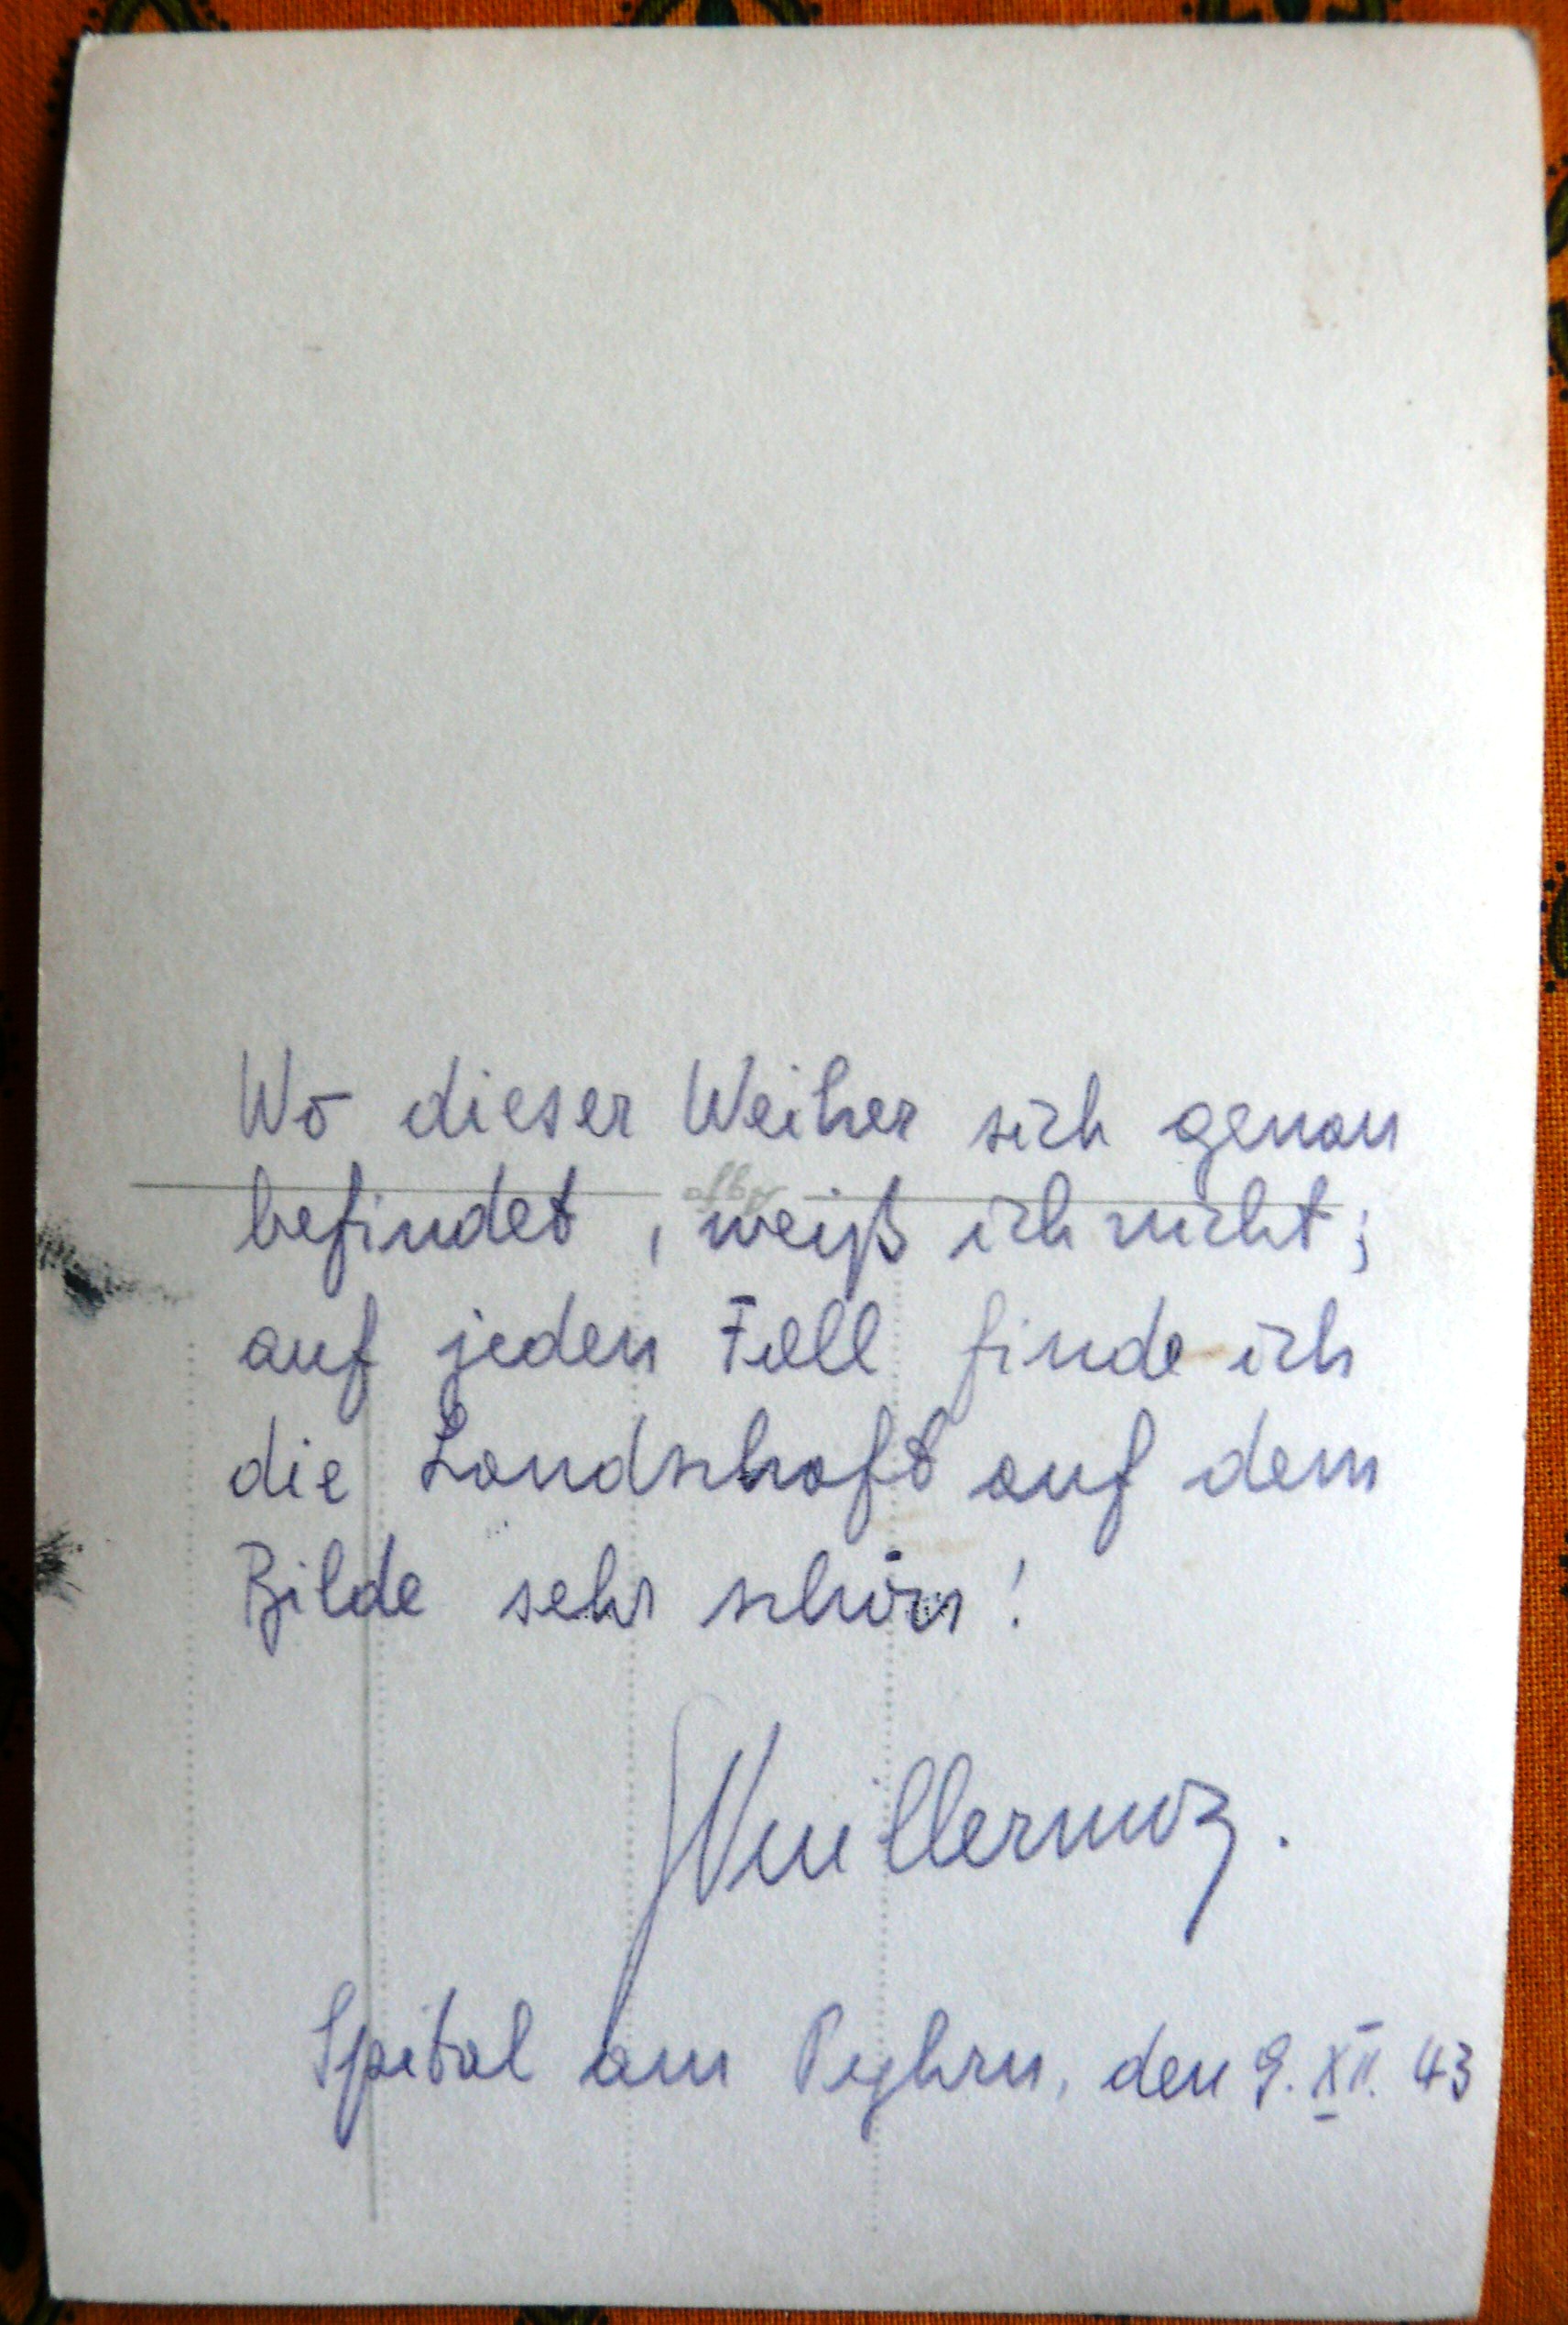 Wo dieser Weiher sich genau
Agfa
befindet, weiß ich nicht;
auf jeden Fall finde ich
die Landschaft auf dem
Bilde sehr schön!
Vuillermoz.
Spital am Pyhrn, den 9. XII. 43